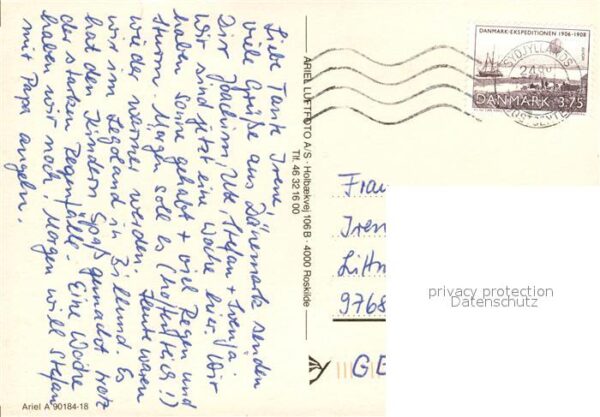 Liebe Tante Irene,
viele Grüße aus Dänemark senden
Dir Joachim, Ute, Stefan + Svenja.
Wir sind jetzt eine Woche hier. Wir
haben Sonne gehabt + viel Regen und
Sturm. Morgen soll es (hoffentlich!)
wieder wärmer werden. Heute waren
wir im Legoland in Billund. Es
hat den Kindern Spaß gemacht trotz
der starken Regenfälle. Eine Woche
haben wir noch! Morgen will Stefan
mit Papa angeln.
Ariel A 90184-18
ARIEL LUFTFOTO A/S · Holbækvej 106B · 4000 Roskilde
Tlf. 46 32 16 00
DANMARK-EKSPEDITIONEN 1906-1908
EUROPA
DANMARK 3.75
SYDJYLLANDS
POSTCENTER
Frau
Iren
Littm
9768
GE
privacy protection
Datenschutz